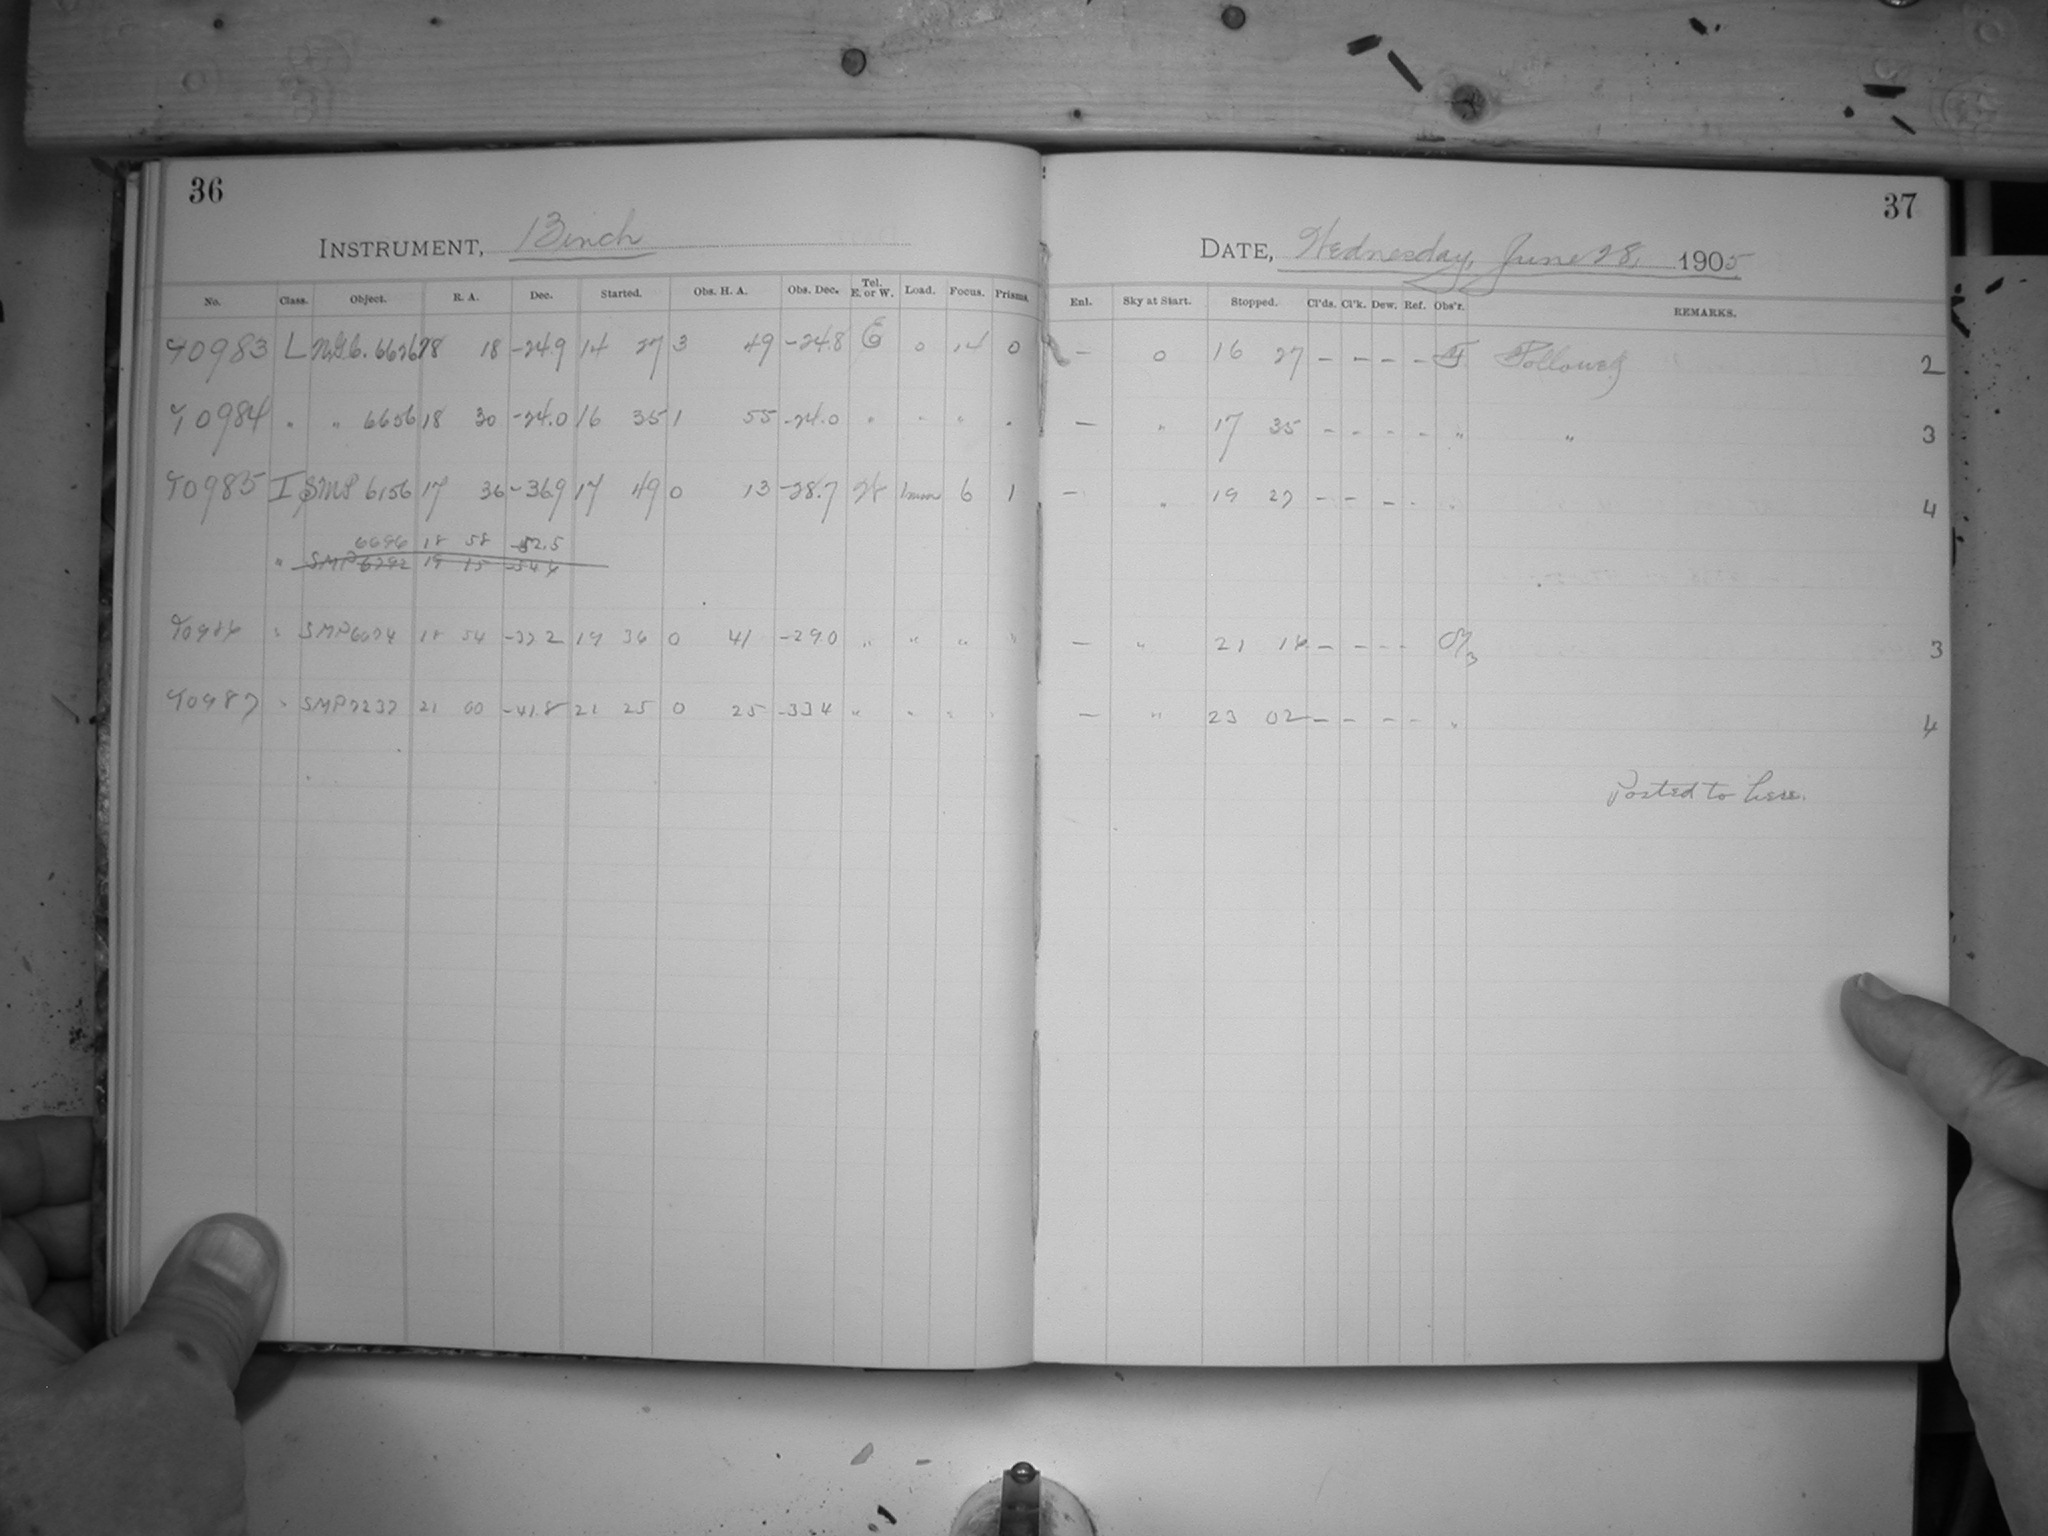 36
37
INSTRUMENT, 13 inch
DATE, Wednesday, June 28, 1905
No. Class. Object. R. A. Dec. Started. Obs. H. A. Obs. Dec. Tel. E. or W. Load. Focus. Prisms. Enl. Sky at Start. Stopped. Cl'ds. Cl'k. Dew. Ref. Obs'r. REMARKS.
Y0983 L N.G.C. 6626 18 18 -24.9 14 27 3 49 -24.8 E 0 14 0 — 0 16 27 – – – – F. Followed 2
Y0984 " " 6656 18 30 -24.0 16 35 1 55 -24.0 " " " " — " 17 35 – – – – " " 3
Y0985 I SMP 6156 17 36 -36.9 17 49 0 13 -28.7 W 6 1 — " 19 27 – – – – " 4
6696 18 58 -52.5
" SMP 6792 19 15 -54.4
Y0986 " SMP 6674 18 54 -37.2 19 36 0 41 -29.0 " " " " — " 21 16 – – – – 3
Y0987 " SMP 7237 21 00 -41.8 21 25 0 25 -33.4 " " " " — " 23 02 – – – – " 4
Posted to here.